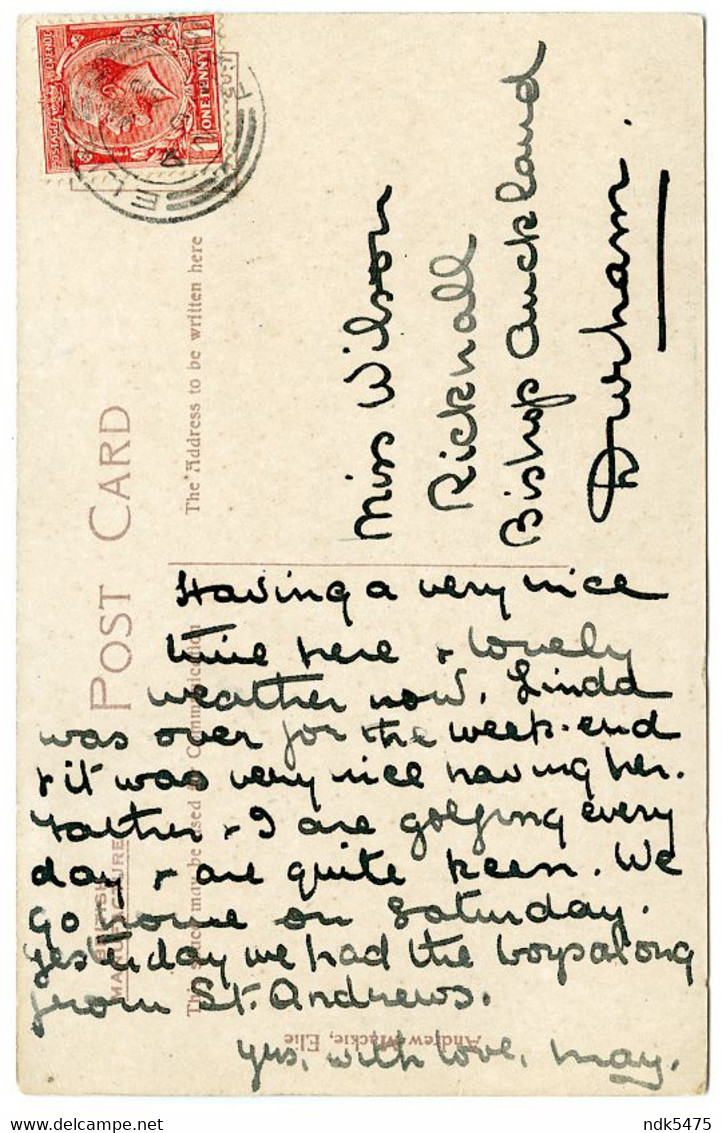 POSTAGE
REVENUE
ONE PENNY
POST CARD
The Address to be written here
Miss Wilson
Ricknall
Bishop Auckland
Durham.
This space may be used for Communication
BRITISH
MANUFACTURE
Having a very nice
time here & lovely
weather now. Lindd
was over for the week-end
& it was very nice having her.
Father & I are golfing every
day & are quite keen. We
go home on Saturday.
Yesterday we had the boys along
from St. Andrews.
Yrs, with love, May.
Andrew Mackie, Elie
ndk5475